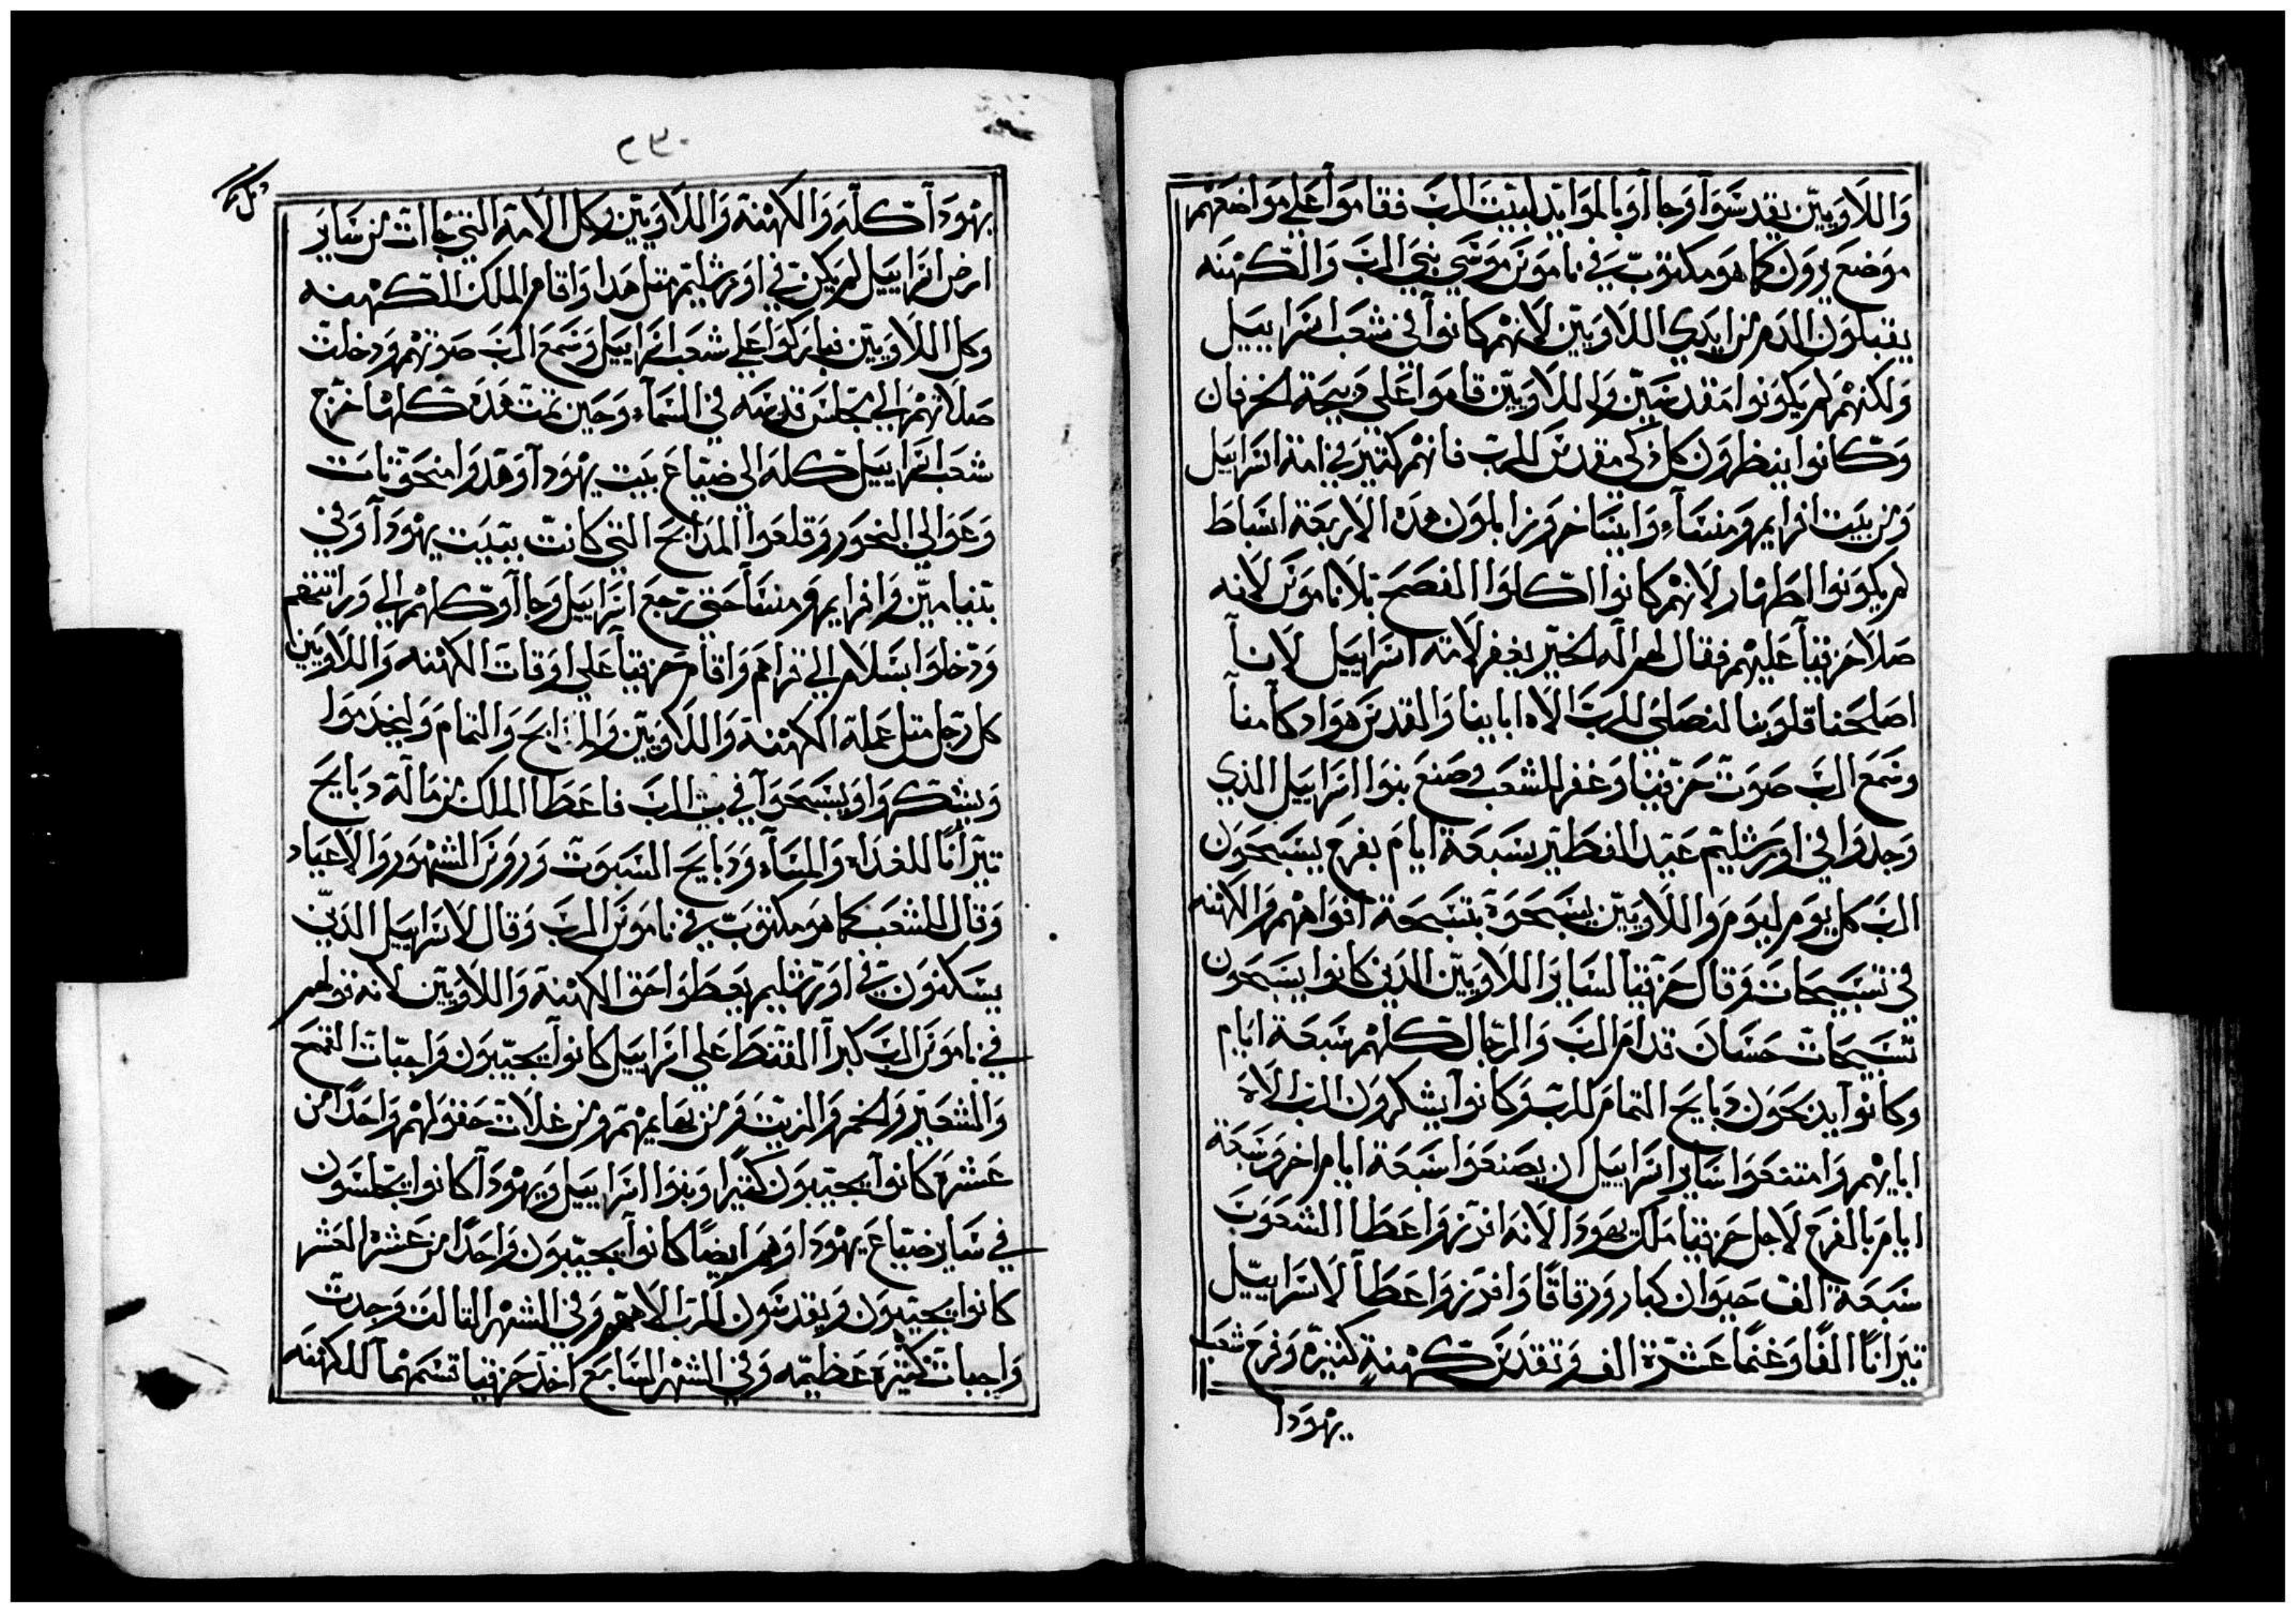 واللاويين يقدسوا وجاأوا بالموايد لبيت الرب فقاموا علي مواضعهم
موضع رون كما هو مكتوب في ناموس موسي نبي الرب والكهنه
يقبلون الدم من ايدي اللاويين لانهم كانوا في شعب اسراييل
ولكنهم لم يكونوا مقدسين واللاويين قاموا علي دبيحة الخرفان
وكانوا ينظرون كل ذكي مقدس للرب فانهم كتير في امة اسراييل
ومن بيت افرايم ومنسآء وايسا خر وزابلون هده الاربعة اسباط
لم يكونوا اطهار لانهم كانوا اكلوا الفصح بلا ناموس لانه
صلا حزقيا عليهم فقال لهم اله الخير يغفر لامة اسراييل لاننا
اصلحنا قلوبنا لنصلي للرب الاه اباينا والقدس هوادكامنا
وسمع الرب صوت حزقيا وغفر للشعب وصنع بنوا اسراييل الذي
وجدوا في اورشليم عيد الفطير سبعة ايام بفرح يسبحون
الرب كل يوم ليوم واللاويين يسبحوة بتسبحة افواههم والكهنه
في تسبيحات وقال حزقيا لساير اللاويين الدين كانوا يسبحون
تسبيحات حسان قدام الرب والرجال كلهم سبعة ايام
وكانوا يدبحون دبايح التمام للرب وكانوا يشكرون الرب الاة
ابايهم وامتنعوا ساير اسراييل ان يصنعوا سبعة ايام اخر وسبعة
ايام بالفرح لاجل حزقيا ملك يهودا لانه اندر واعطا الشعوب
سبعة الف حيوان كبار ورقاقا وافرز واعطا لاسراييل
تيرانا الفا وغنما عشرة الف وتقدس كهنة كتيره وفرح شعب
يهودا
٢٣٠
يهودا كله والكهنة واللاويين وكل الامة التي جاات من ساير
ارض اسراييل لم يكن في اورشليم متل هدا واقام الملك الكهنه
وكل اللاويين فباركوا علي شعب اسراييل وسمع الرب صوتهم ودخلت
صلاتهم الي مجلس قدسه في السمآء وحين تمت هده كلها خرج
شعب اسراييل كله الي ضياع بيت يهودا وهدوا منحوتات
وعوالي النحور وقلعوا المدابح التي كانت ببيت يهودا وفي
بنيامين وافرايم ومنسا حتي رجع اسراييل وجاأو كلهم الي وراتتهم
ودخلوا بسلام الي قراهم واقام حزقيا علي اوقات الكهنه واللاويين
كل رجل متل عملة الكهنة واللاويين والدبايح والتمام وليخدموا
ويشكروا ويسبحوا في بيت الرب فاعطا الملك من مالة دبايح
تيرانا للغداه والمسآء ودبايح السبوت وروس الشهور والاعياد
وقال للشعب كما هو مكتوب في ناموس الرب وقال لاسراييل الدين
يسكنون في اورشليم يعطوا حق الكهنة واللاويين لانه نولهم
في ناموس الرب كبرا القسط علي اسراييل كانوا يجيبون واجبات القمح
والشعير والخمر والزيت ومن بهايمهم ومن غلات حقولهم واحدا من
عشره كانوا يجيبون كتيرا وبنوا اسراييل ويهودا كانوا يجلسون
في ساير ضياع يهودا وهم ايضا كانوا يجيبون واحدا من عشره العشر
كانوا يجيبون ويقدسون للرب الاههم وفي الشهر التالت وجدت
واجبات كتيره عظيمه وفي الشهر السابع اخد حزقيا قسمهما للكهنه